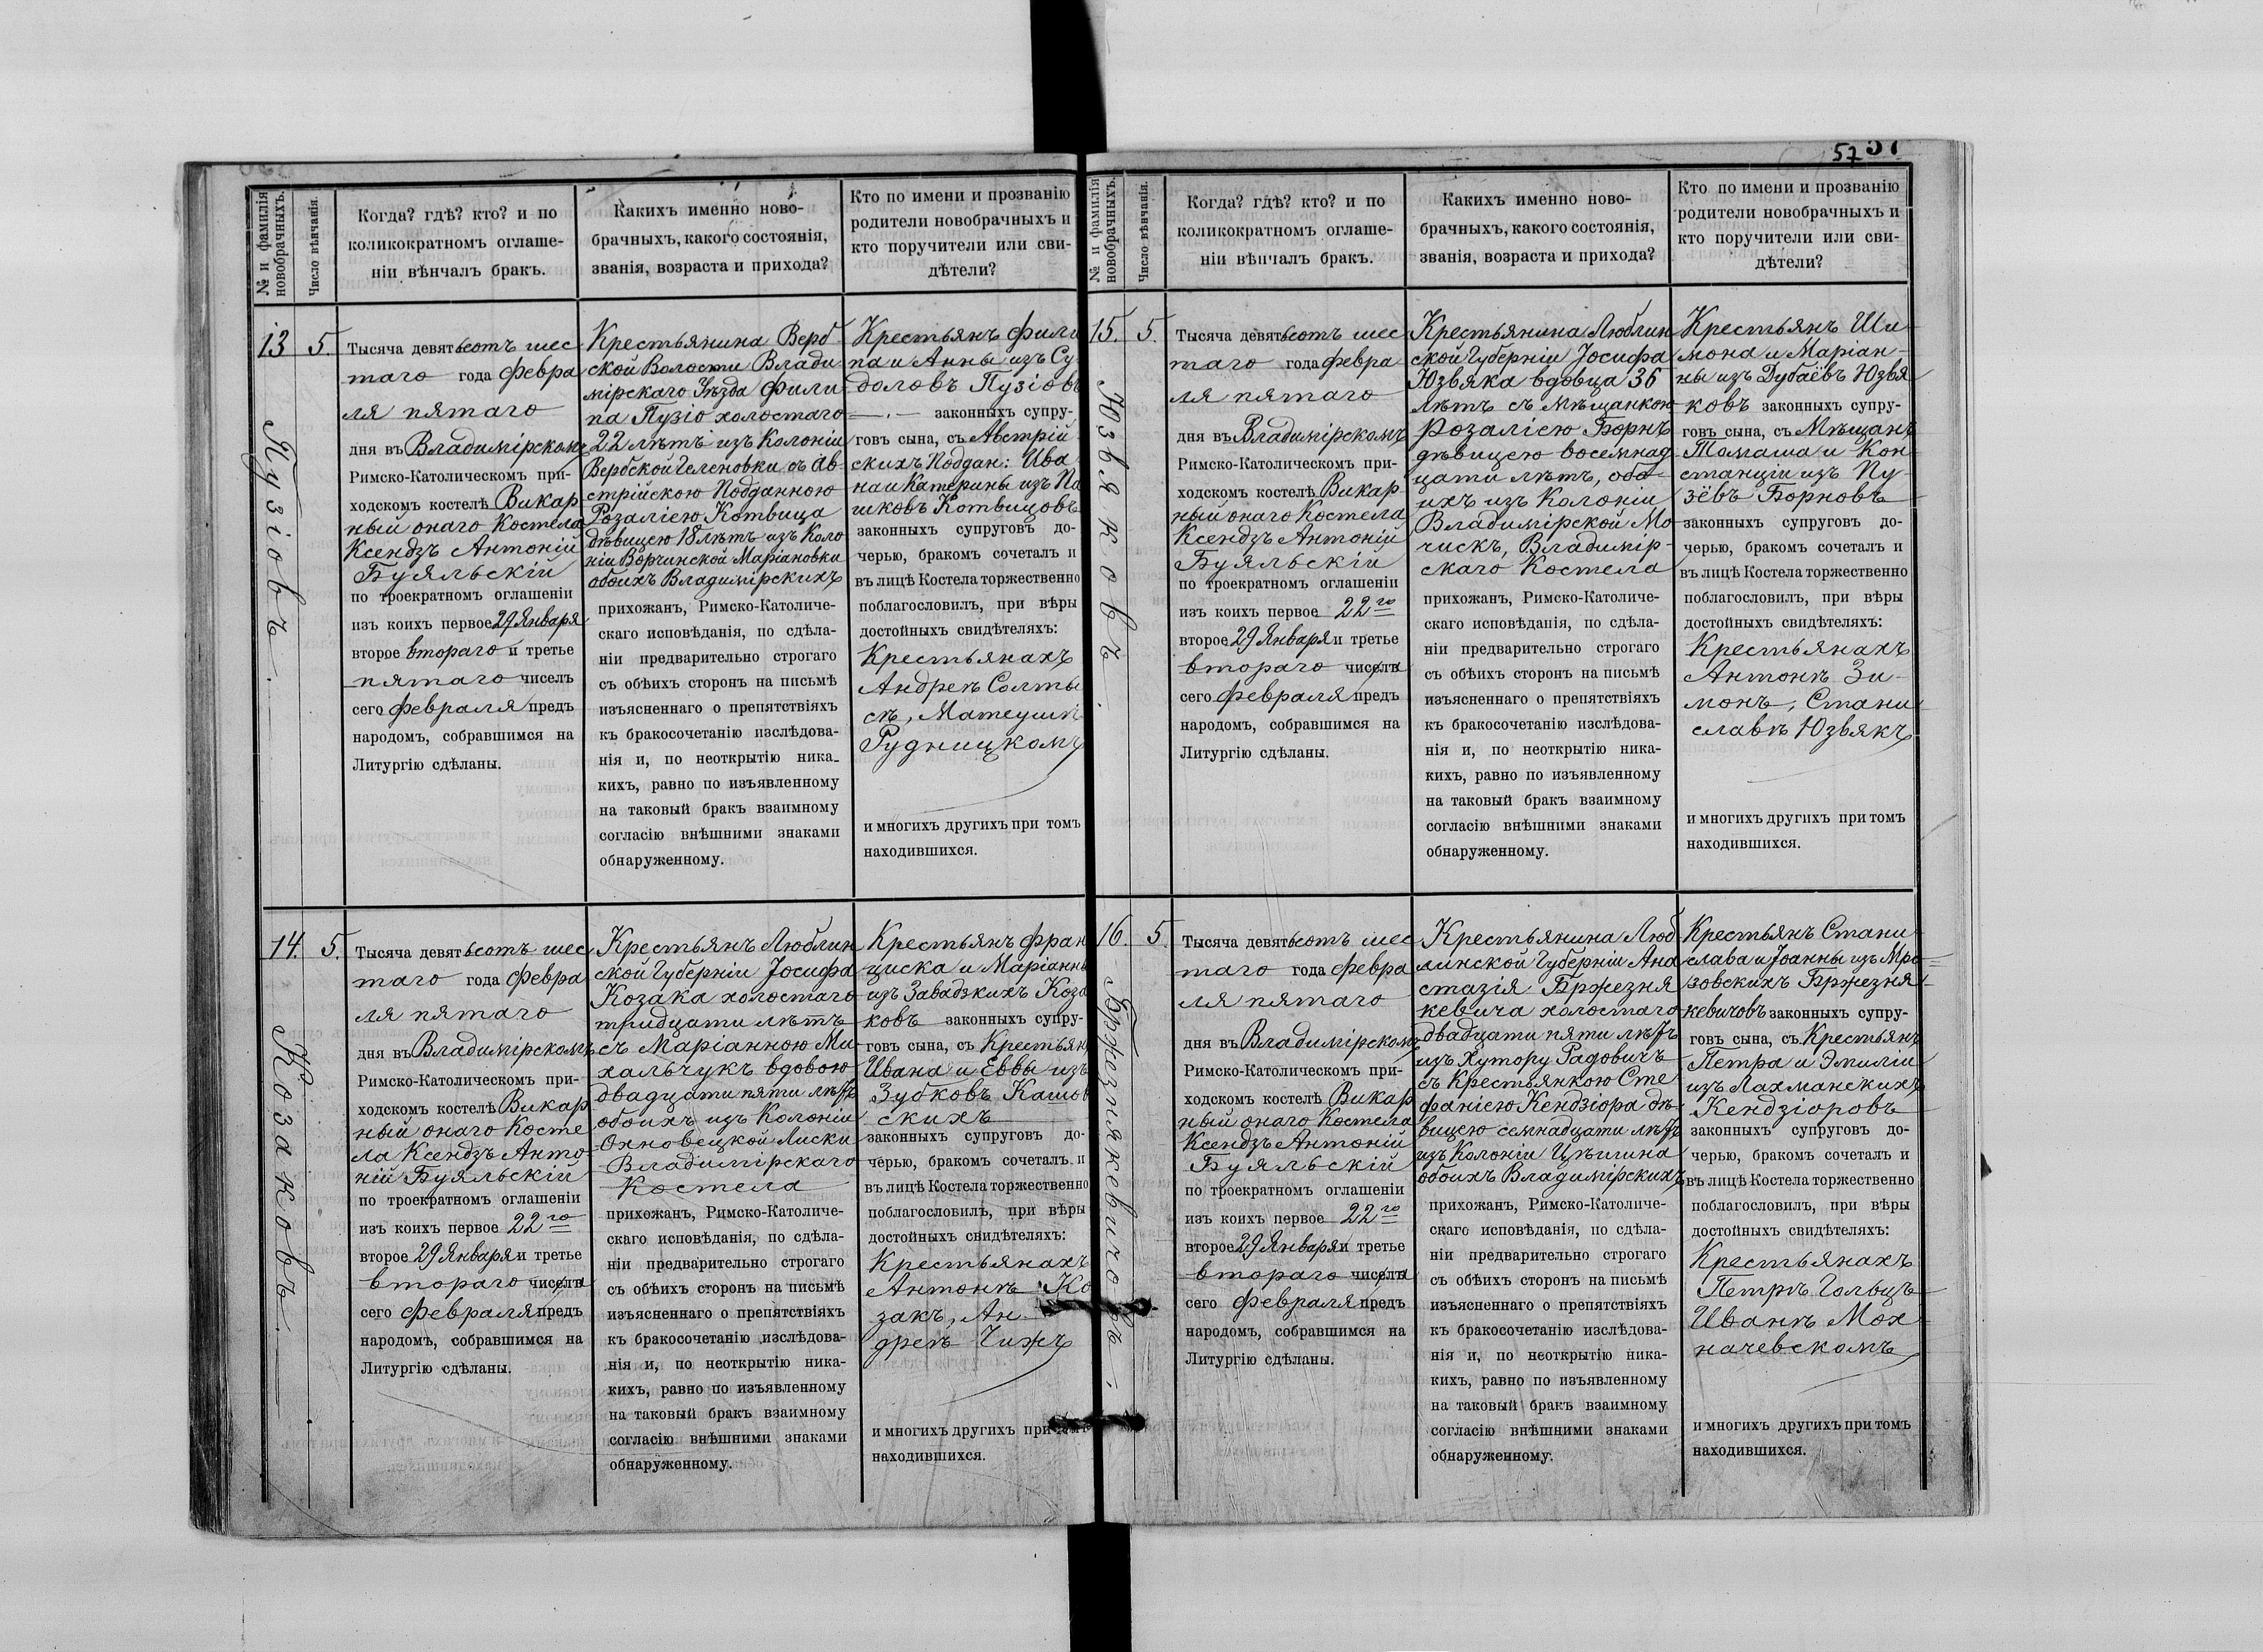 57 57
№ и фамилія новобрачныхъ.
Число вѣнчанія.
Когда? гдѣ? кто? и по
коликократномъ оглаше-
ніи вѣнчалъ бракъ.
Какихъ именно ново-
брачныхъ, какого состоянія,
званія, возраста и прихода?
Кто по имени и прозванію
родители новобрачныхъ и
кто поручители или сви-
дѣтели?
13
Пузіовъ.
5.
Тысяча девятьсотъ шес
таго года февра
ля пятаго
дня въ Владимірскомъ
Римско-Католическомъ при-
ходскомъ костелѣ Викар
ный онаго Костела
Ксендзъ Антоній
Буяльскій
по троекратномъ оглашеніи
изъ коихъ первое 29 Января
второе втораго и третье
пятаго чиселъ
сего февраля предъ
народомъ, собравшимся на
Литургію сдѣланы.
Крестьянина Верб
ской Волости Влади
мірскаго Уѣзда Фили
па Пузіо холостаго
22 лѣтъ изъ Колоніи
Вербской Геленовки съ Ав
стрійскою Подданною
Розаліею Котвица
дѣвицею 18 лѣтъ изъ Коло
ніи Ворчинской Маріановки
обоихъ Владимірскихъ
прихожанъ, Римско-Католиче-
скаго исповѣданія, по сдѣла-
ніи предварительно строгаго
съ обѣихъ сторонъ на письмѣ
изъясненнаго о препятствіяхъ
къ бракосочетанію изслѣдова-
нія и, по неоткрытію ника-
кихъ, равно по изъявленному
на таковый бракъ взаимному
согласію внѣшними знаками
обнаруженному.
Крестьянъ Фили
па и Анны изъ Су
доловъ Пузіовъ
законныхъ супру-
говъ сына, съ Австрій
скихъ Поддан: Ива
на и Катерины изъ Па
шковъ Котвицовъ
законныхъ супруговъ до-
черью, бракомъ сочеталъ и
въ лицѣ Костела торжественно
поблагословилъ, при вѣры
достойныхъ свидѣтеляхъ:
Крестьянахъ
Андреѣ Солты
сѣ, Матеушѣ
Рудницкомъ
и многихъ другихъ при томъ
находившихся.
14.
Козаковъ.
5.
Тысяча девятьсотъ шес
таго года февра
ля пятаго
дня въ Владимірскомъ
Римско-Католическомъ при-
ходскомъ костелѣ Викар
ный онаго Косте
ла Ксендзъ Анто-
ній Буяльскій
по троекратномъ оглашеніи
изъ коихъ первое 22го
второе 29 Января и третье
втораго числа
сего февраля предъ
народомъ, собравшимся на
Литургію сдѣланы.
Крестьянъ Люблин
ской Губерніи Іосифа
Козака холостаго
тридцати лѣтъ
съ Маріанною Ми
хальчукъ вдовою
двадцати пяти лѣтъ
обоихъ изъ Колоніи
Охновецкой Лиски
Владимірскаго
Костела
прихожанъ, Римско-Католиче-
скаго исповѣданія, по сдѣла-
ніи предварительно строгаго
съ обѣихъ сторонъ на письмѣ
изъясненнаго о препятствіяхъ
къ бракосочетанію изслѣдова-
нія и, по неоткрытію ника-
кихъ, равно по изъявленному
на таковый бракъ взаимному
согласію внѣшними знаками
обнаруженному.
Крестьянъ Фран
циска и Маріанны
изъ Завадзкихъ Коза
ковъ законныхъ супру-
говъ сына, съ Крестьян
Ивана и Еввы изъ
Зубковъ Кашов
скихъ
законныхъ супруговъ до-
черью, бракомъ сочеталъ и
въ лицѣ Костела торжественно
поблагословилъ, при вѣры
достойныхъ свидѣтеляхъ:
Крестьянахъ
Антонѣ Ко
закъ, Ан-
дреѣ Чижъ
и многихъ другихъ при томъ
находившихся.
№ и фамилія новобрачныхъ.
Число вѣнчанія.
Когда? гдѣ? кто? и по
коликократномъ оглаше-
ніи вѣнчалъ бракъ.
Какихъ именно ново-
брачныхъ, какого состоянія,
званія, возраста и прихода?
Кто по имени и прозванію
родители новобрачныхъ и
кто поручители или сви-
дѣтели?
15.
Юзвяковъ.
5.
Тысяча девятьсотъ шес
таго года февра
ля пятаго
дня въ Владимірскомъ
Римско-Католическомъ при-
ходскомъ костелѣ Викар
ный онаго Костела
Ксендзъ Антоній
Буяльскій
по троекратномъ оглашеніи
изъ коихъ первое 22го
второе 29 Января и третье
втораго числа
сего февраля предъ
народомъ, собравшимся на
Литургію сдѣланы.
Крестьянина Люблин
ской Губерніи Іосифа
Юзвяка вдовца 36
лѣтъ съ Мѣщанкою
Розаліею Борнъ
дѣвицею восемнад
цати лѣтъ, обо-
ихъ изъ Колоніи
Владимірской Мо
чискъ, Владимір-
скаго Костела
прихожанъ, Римско-Католиче-
скаго исповѣданія, по сдѣла-
ніи предварительно строгаго
съ обѣихъ сторонъ на письмѣ
изъясненнаго о препятствіяхъ
къ бракосочетанію изслѣдова-
нія и, по неоткрытію ника-
кихъ, равно по изъявленному
на таковый бракъ взаимному
согласію внѣшними знаками
обнаруженному.
Крестьянъ Ши
мона и Маріан-
ны изъ Дубаёвъ Юзвя
ковъ законныхъ супру-
говъ сына, съ Мѣщанъ
Томаша и Кон
станціи изъ Пу-
зёвъ Борновъ
законныхъ супруговъ до-
черью, бракомъ сочеталъ и
въ лицѣ Костела торжественно
поблагословилъ, при вѣры
достойныхъ свидѣтеляхъ:
Крестьянахъ
Антонѣ Зи-
монъ, Стани
славѣ Юзвякъ
и многихъ другихъ при томъ
находившихся.
16.
Бржезнякевичовъ
5.
Тысяча девятьсотъ шес
таго года февра
ля пятаго
дня въ Владимірскомъ
Римско-Католическомъ при-
ходскомъ костелѣ Викар
ный онаго Костела
Ксендзъ Антоній
Буяльскій
по троекратномъ оглашеніи
изъ коихъ первое 22го
второе 29 Января и третье
втораго числа
сего февраля предъ
народомъ, собравшимся на
Литургію сдѣланы.
Крестьянина Люб
линской Губерніи Ана
стазія Бржезня
кевича холостаго
двадцати пяти лѣтъ
изъ Хутору Радовичъ
съ Крестьянкою Сте
фаніею Кендзіора дѣ-
вицею семнадцати лѣтъ
изъ Колоніи Цѣшина
обоихъ Владимірскихъ
прихожанъ, Римско-Католиче-
скаго исповѣданія, по сдѣла-
ніи предварительно строгаго
съ обѣихъ сторонъ на письмѣ
изъясненнаго о препятствіяхъ
къ бракосочетанію изслѣдова-
нія и, по неоткрытію ника-
кихъ, равно по изъявленному
на таковый бракъ взаимному
согласію внѣшними знаками
обнаруженному.
Крестьянъ Стани
слава и Іоанны изъ Мро
зовскихъ Бржезня-
кевичовъ законныхъ супру-
говъ сына, съ Крестьянъ
Петра и Эмиліи
изъ Лахманскихъ
Кендзіоровъ
законныхъ супруговъ до-
черью, бракомъ сочеталъ и
въ лицѣ Костела торжественно
поблагословилъ, при вѣры
достойныхъ свидѣтеляхъ:
Крестьянахъ
Петрѣ Гольцъ
Иванѣ Мох
начевскомъ
и многихъ другихъ при томъ
находившихся.